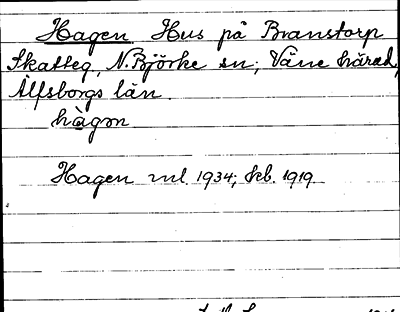 Hagen Hus på Branstorp
Skatteg, N. Björke sn; Väne härad,
Älfsborgs län.
hàgɔn
Hagen ml. 1934; kb. 1919